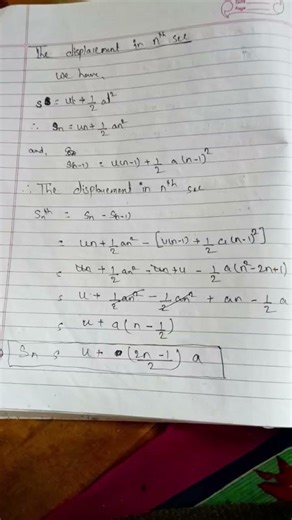 The displacement in nth sec
We have,
s = ut + 1/2 at²
∴ Sn = un + 1/2 an²
and,
S(n-1) = u(n-1) + 1/2 a(n-1)²
∴ The displacement in nth sec
Snth = Sn - S(n-1)
= un + 1/2 an² - [u(n-1) + 1/2 a(n-1)²]
= un + 1/2 an² - un + u - 1/2 a(n²-2n+1)
= u + 1/2 an² - 1/2 an² + an - 1/2 a
= u + a(n - 1/2)
Sn = u + (2n-1/2) a